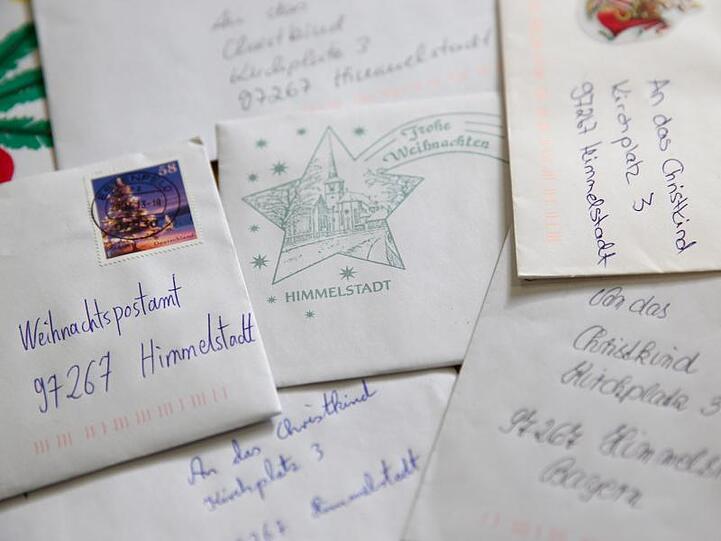 An das
Christkind
Kirchplatz 3
97267 Himmelstadt
Frohe
Weihnachten
HIMMELSTADT
58
Deutschland
Weihnachtspostamt
97267 Himmelstadt
An das Christkind
Kirchplatz 3
97267 Himmelstadt
An das
Christkind
Kirchplatz 3
97267 Himmelst
Bayern
An das Christkind
Kirchplatz 3
97267 Himmelstadt